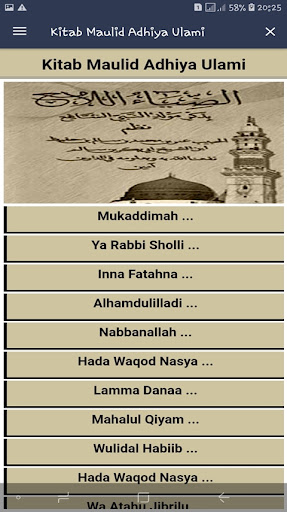 58% 20:25
Kitab Maulid Adhiya Ulami
Kitab Maulid Adhiya Ulami
الضياء اللامع
نظم
آمين
Mukaddimah ...
Ya Rabbi Sholli ...
Inna Fatahna ...
Alhamdulilladi ...
Nabbanallah ...
Hada Waqod Nasya ...
Lamma Danaa ...
Mahalul Qiyam ...
Wulidal Habiib ...
Hada Waqod Nasya ...
Wa Atahu Jibrilu